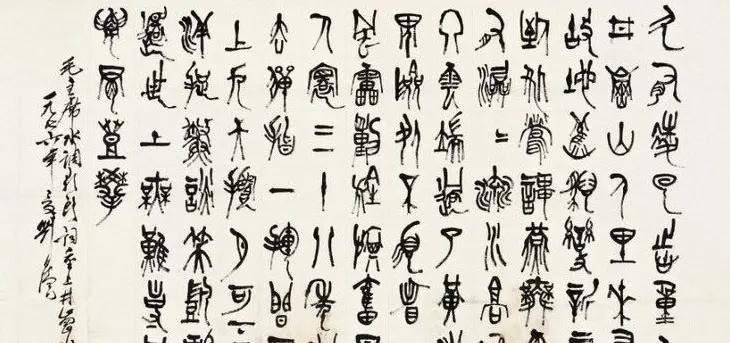 久有凌雲志重
井岡山千里來尋
故地舊貌變新
到處鶯歌燕舞
有潺潺流水高
入雲端過了黃洋
界險處不須看
風雷動旌旗奮是
人寰三十八年
去彈指一揮間
上九天攬月可
洋捉鱉談笑凱歌
還世上無難事
要肯登攀
毛主席水調歌頭詞重上井岡山
一九七六年